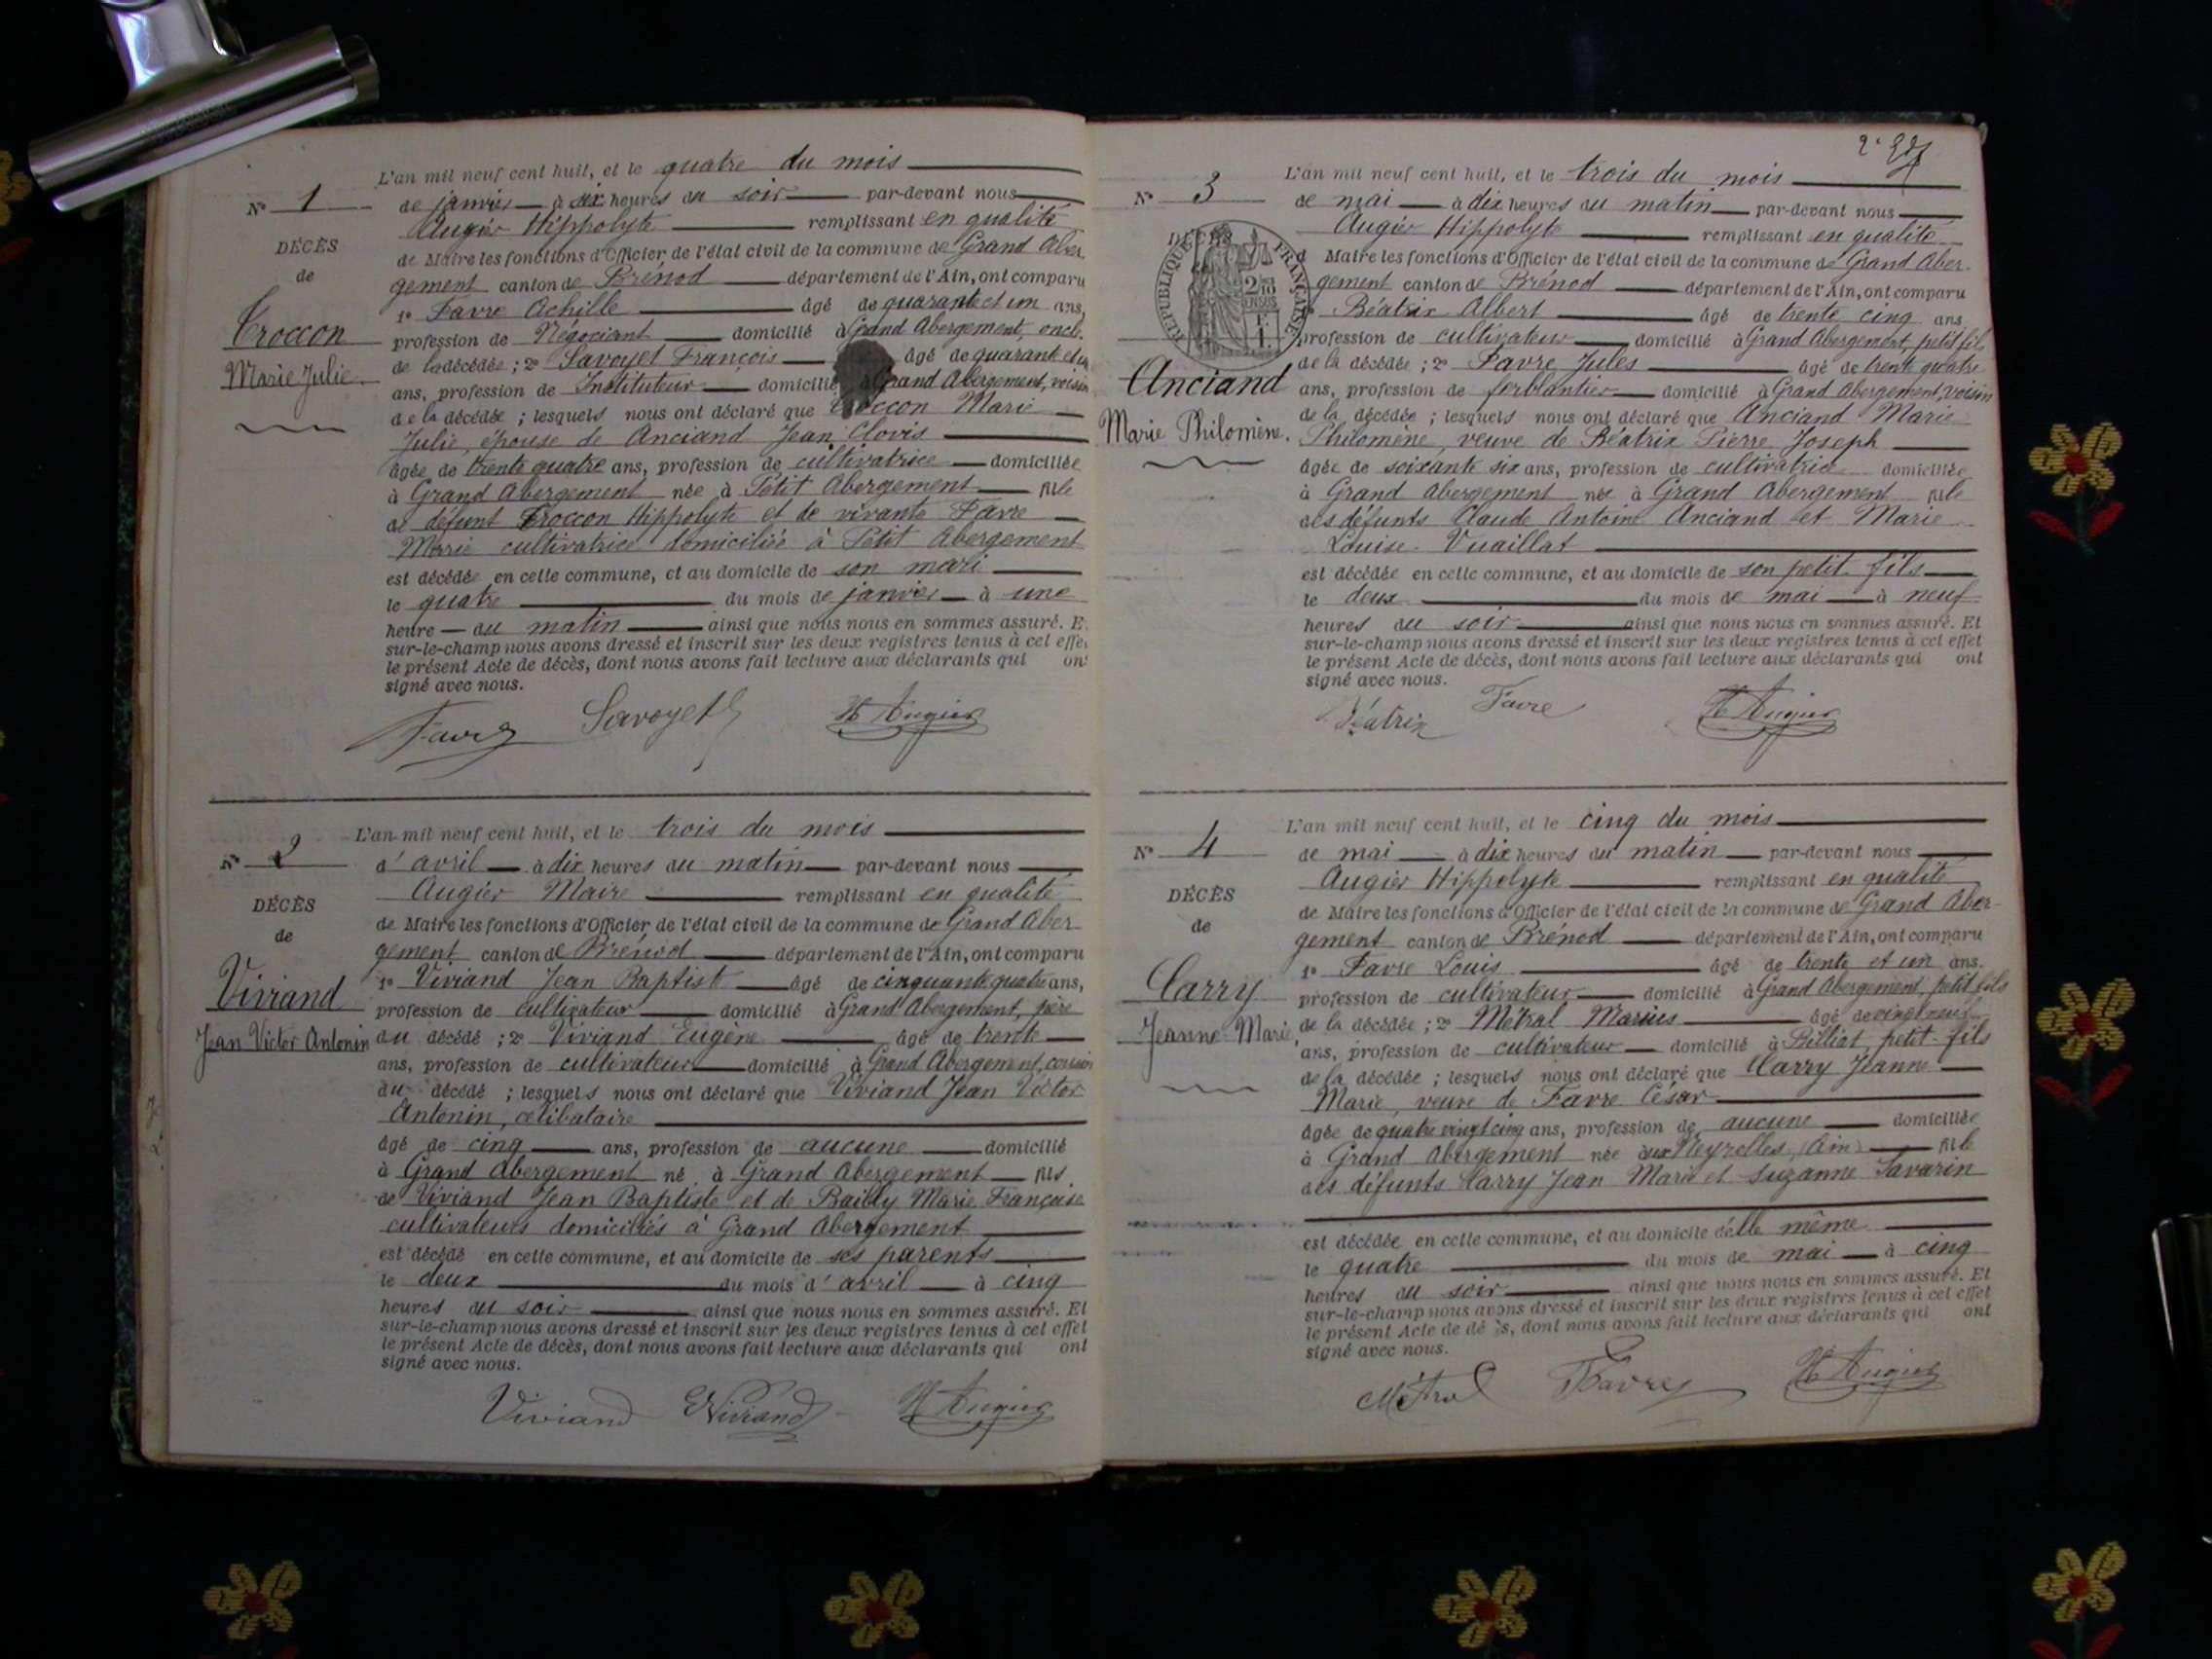 L'an mil neuf cent huit, et le quatre du mois
N° 1
de janvier à dix heures du soir par-devant nous
Augier Hippolyte remplissant en qualité
DÉCÈS
de Maire les fonctions d'Officier de l'état civil de la commune de Grand Aber
de
gement canton de Brénod département de l'Ain, ont comparu
1° Favre Achille âgé de quarante et un ans,
Troccon
profession de Négociant domicilié à Grand Abergement, oncle
de la décédée ; 2° Savoyet François âgé de quarante et un
Marie Julie
ans, profession de Instituteur domicilié à Grand Abergement, voisin
de la décédée ; lesquels nous ont déclaré que Troccon Marie
Julie, épouse de Anciand Jean Clovis
âgée de trente quatre ans, profession de cultivatrice domiciliée
à Grand Abergement née à Petit Abergement fille
de défunt Troccon Hippolyte et de vivante Favre
Marie cultivatrice domiciliée à Petit Abergement
est décédée en cette commune, et au domicile de son mari
le quatre du mois de janvier à une
heure du matin ainsi que nous nous en sommes assuré. E
sur-le-champ nous avons dressé et inscrit sur les deux registres tenus à cet effet
le présent Acte de décès, dont nous avons fait lecture aux déclarants qui ont
signé avec nous.
Favre Savoyet H Augier
L'an mil neuf cent huit, et le trois du mois
N° 2
d'avril à dix heures du matin par-devant nous
Augier Maire remplissant en qualité
DÉCÈS
de Maire les fonctions d'Officier de l'état civil de la commune de Grand Aber
de
gement canton de Brénod département de l'Ain, ont comparu
1° Viviand Jean Baptist âgé de cinquante quatre ans,
Viviand
profession de cultivateur domicilié à Grand Abergement, père
Jean Victor Antonin
du décédé ; 2° Viviand Eugène âgé de trente
ans, profession de cultivateur domicilié à Grand Abergement, cousin
du décédé ; lesquels nous ont déclaré que Viviand Jean Victor
Antonin, célibataire
âgé de cinq ans, profession de aucune domicilié
à Grand Abergement né à Grand Abergement fils
de Viviand Jean Baptiste et de Bailly Marie Française
cultivateurs domiciliés à Grand Abergement
est décédé en cette commune, et au domicile de ses parents
le deux du mois d'avril à cinq
heures du soir ainsi que nous nous en sommes assuré. Et
sur-le-champ nous avons dressé et inscrit sur les deux registres tenus à cet effet
le présent Acte de décès, dont nous avons fait lecture aux déclarants qui ont
signé avec nous.
Viviand EViviand H Augier
L'an mil neuf cent huit, et le trois du mois
N° 3
de mai à dix heures du matin par-devant nous
Augier Hippolyte remplissant en qualité
DÉCÈS
RÉPUBLIQUE FRANÇAISE
de Maire les fonctions d'Officier de l'état civil de la commune de Grand Aber-
gement canton de Brénod département de l'Ain, ont comparu
2/10 EN SUS
Béatrix Albert âgé de trente cinq ans
profession de cultivateur domicilié à Grand Abergement, petit fils
de la décédée ; 2° Favre Jules âgé de trente quatre
Anciand
ans, profession de ferblantier domicilié à Grand Abergement, voisin
de la décédée ; lesquels nous ont déclaré que Anciand Marie
Marie Philomène.
Philomène, veuve de Béatrix Pierre Joseph
âgée de soixante six ans, profession de cultivatrice domiciliée
à Grand Abergement née à Grand Abergement fille
des défunts Claude Antoine Anciand et Marie
Louise Vuaillat
est décédée en cette commune, et au domicile de son petit fils
le deux du mois de mai à neuf
heures du soir ainsi que nous nous en sommes assuré. Et
sur-le-champ nous avons dressé et inscrit sur les deux registres tenus à cet effet
le présent Acte de décès, dont nous avons fait lecture aux déclarants qui ont
signé avec nous.
Béatrix Favre H Augier
L'an mil neuf cent huit, et le cinq du mois
N° 4
de mai à dix heures du matin par-devant nous
Augier Hippolyte remplissant en qualité
DÉCÈS
de Maire les fonctions d'Officier de l'état civil de la commune de Grand Aber-
de
gement canton de Brénod département de l'Ain, ont comparu
1° Favre Louis âgé de trente et un ans.
Carry
profession de cultivateur domicilié à Grand Abergement, petit fils
Jeanne Marie,
de la décédée ; 2° Métral Marius âgé de vingt neuf
ans, profession de cultivateur domicilié à Billiat, petit-fils
de la décédée ; lesquels nous ont déclaré que Carry Jeanne
Marie, veuve de Favre César
âgée de quatre vingt cinq ans, profession de aucune domiciliée
à Grand Abergement née aux Neyrolles, (Ain) fille
des défunts Carry Jean Marie et Suzanne Savarin
est décédée en cette commune, et au domicile d'elle même
le quatre du mois de mai à cinq
heures du soir ainsi que nous nous en sommes assuré. Et
sur-le-champ nous avons dressé et inscrit sur les deux registres tenus à cet effet
le présent Acte de décès, dont nous avons fait lecture aux déclarants qui ont
signé avec nous.
Métral Favre H Augier